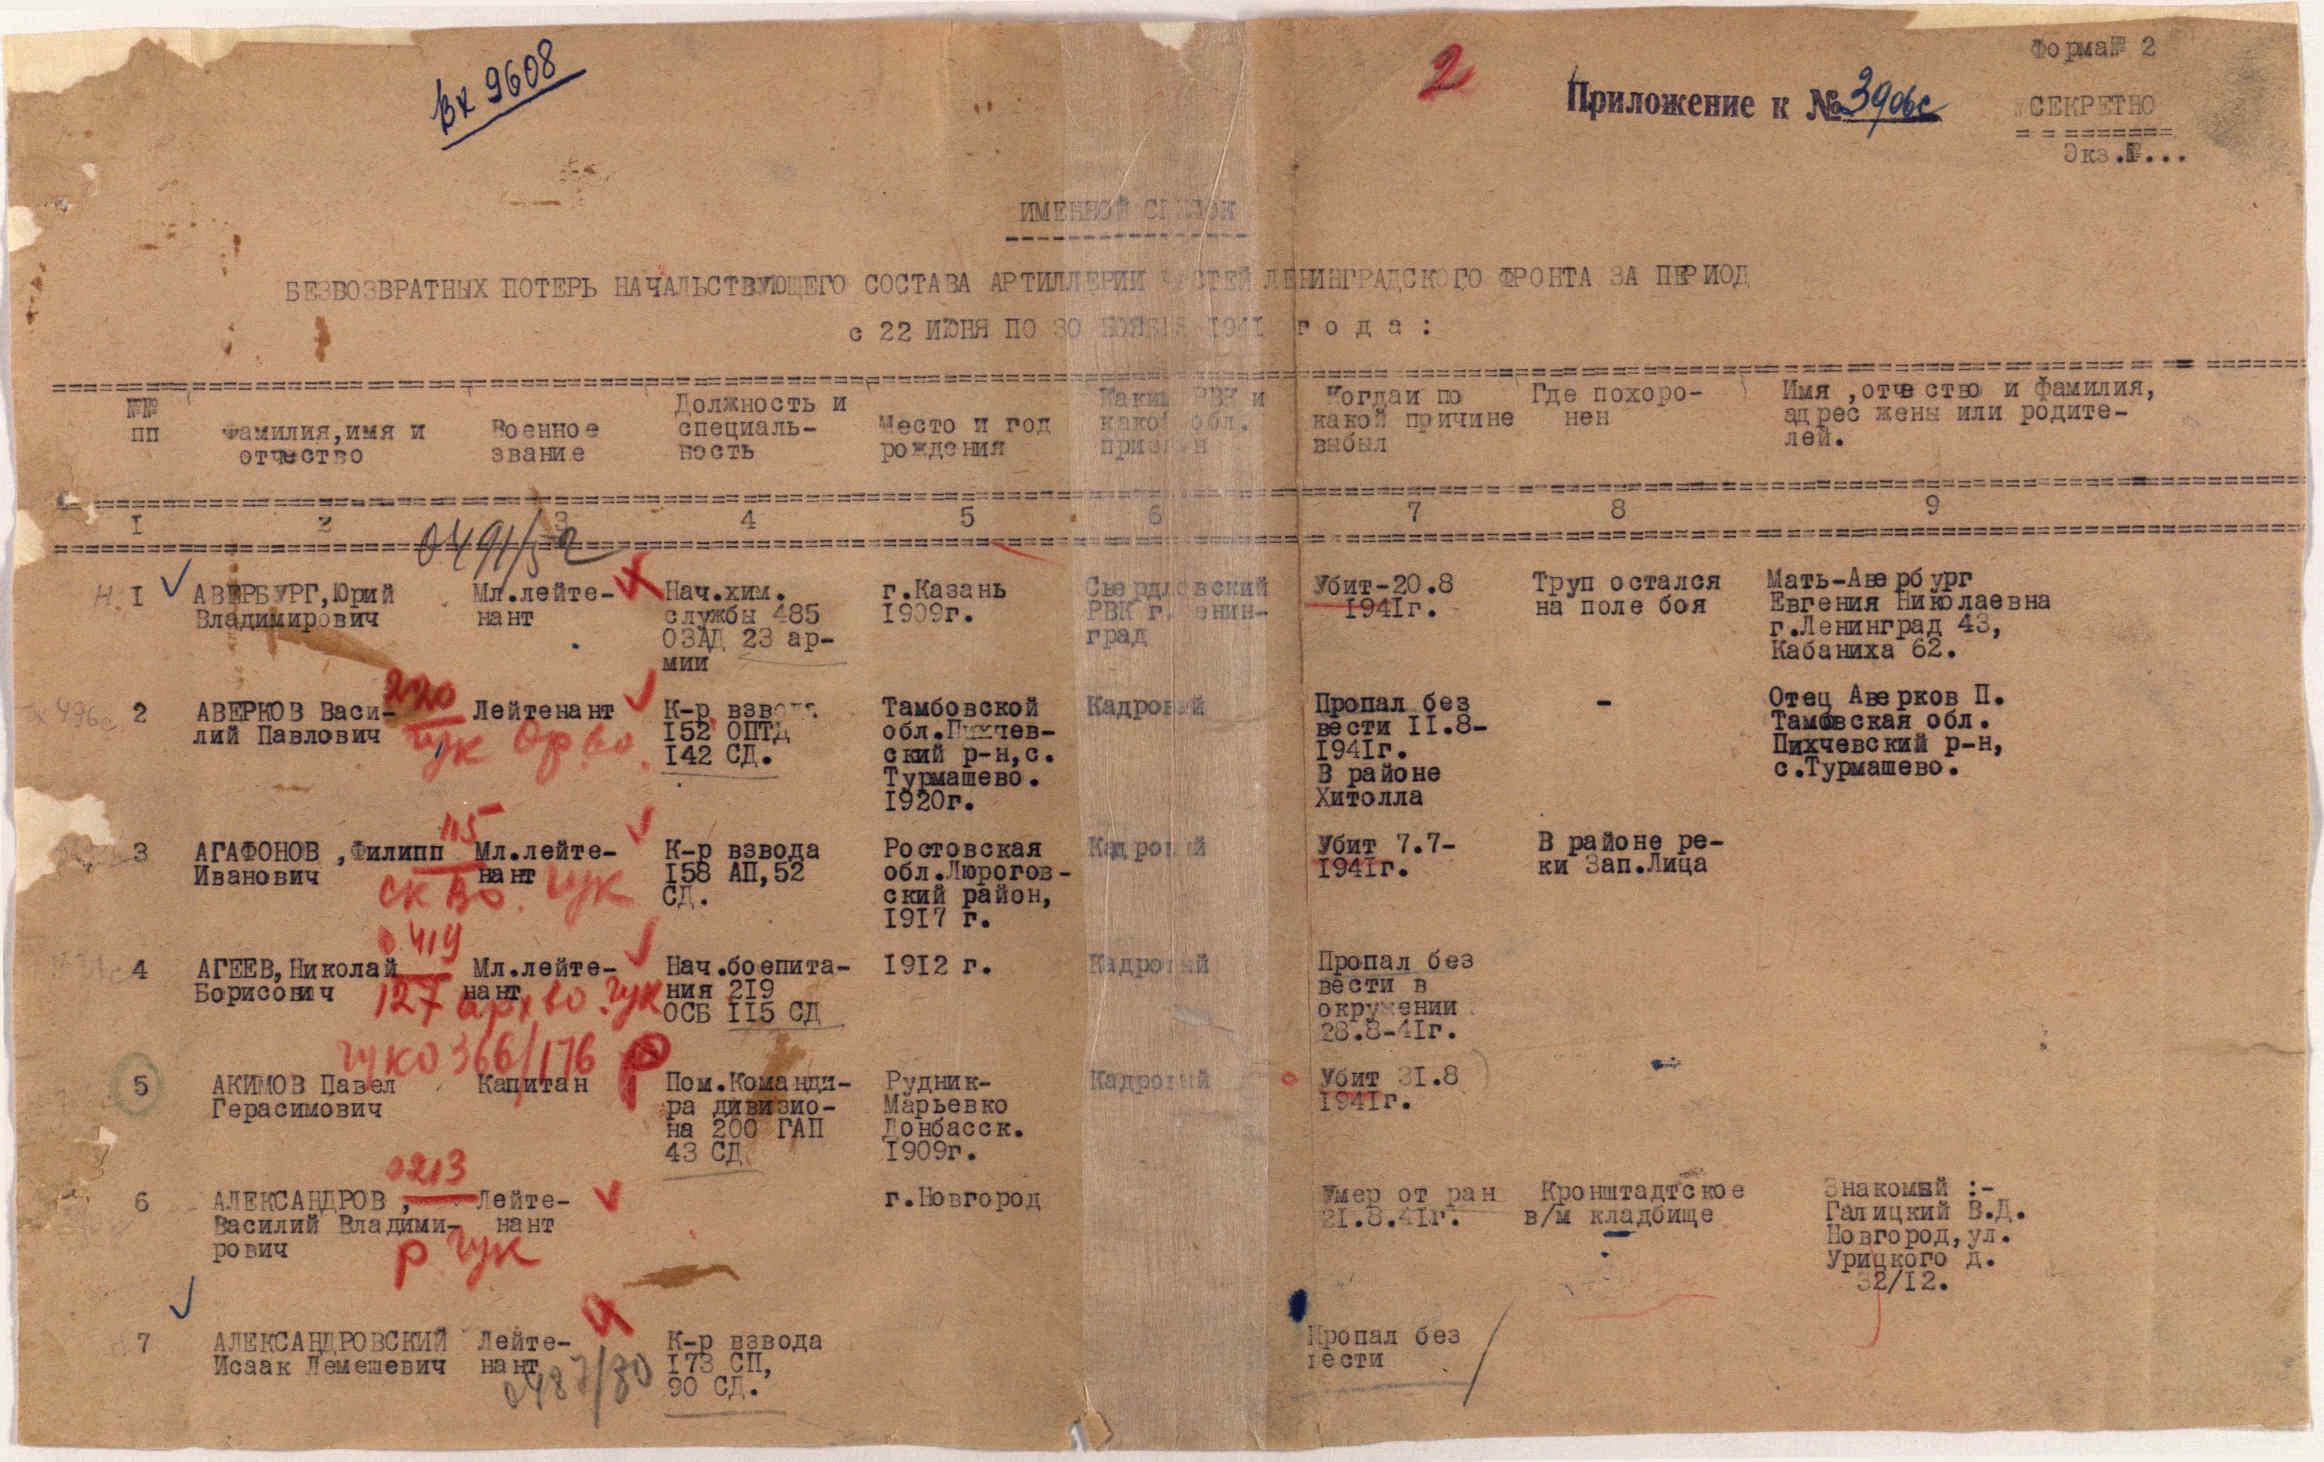 Вх 9608
2
Форма № 2
Приложение к № 390вс
СЕКРЕТНО
Экз.№...
ИМЕННОЙ СПИСОК
БЕЗВОЗВРАТНЫХ ПОТЕРЬ НАЧАЛЬСТВУЮЩЕГО СОСТАВА АРТИЛЛЕРИИ ЧАСТЕЙ ЛЕНИНГРАДСКОГО ФРОНТА ЗА ПЕРИОД
с 22 ИЮНЯ ПО 30 НОЯБРЯ 1941 г о д а :
№№ пп
Фамилия,имя и
отчество
Военное
звание
Должность и
специаль-
ность
Место и год
рождения
Каким РВК и
какой обл.
призван
Когдаи по
какой причине
выбыл
Где похоро-
нен
Имя ,отчество и фамилия,
адрес жены или родите-
лей.
I 2 3 4 5 6 7 8 9
I
АВЕРБУРГ,Юрий
Владимирович
Мл.лейте-
нант
Нач.хим.
службы 485
ОЗАД 23 ар-
мии
г.Казань
1909г.
Свердловский
РВК г.Ленин-
град
Убит-20.8
1941г.
Труп остался
на поле боя
Мать-Авербург
Евгения Николаевна
г.Ленинград 43,
Кабаниха 62.
2
АВЕРКОВ Васи-
лий Павлович
220
гук Орво.
Лейтенант
К-р взвода
152 ОПТД
142 СД.
Тамбовской
обл.Пихчев-
ский р-н,с.
Турмашево.
1920г.
Кадровый
Пропал без
вести II.8-
1941г.
В районе
Хитолла
-
Отец Аверков П.
Тамбвская обл.
Пихчевский р-н,
с.Турмашево.
3
АГАФОНОВ ,Филипп
Иванович
115
ск во. гук
Мл.лейте-
нант
К-р взвода
158 АП,52
СД.
Ростовская
обл.Люрогов-
ский район,
1917 г.
Кадровый
Убит 7.7-
1941г.
В районе ре-
ки Зап.Лица
4
АГЕЕВ,Николай
Борисович
0419
127 арх во. гук
Мл.лейте-
нант
Нач.боепита-
ния 219
ОСБ 115 СД
1912 г.
Кадровый
Пропал без
вести в
окружении
28.8-41г.
гук0366/176 р
5
АКИМОВ Павел
Герасимович
Капитан
Пом.Команди-
ра дивизио-
на 200 ГАП
43 СД
Рудник-
Марьевко
Донбасск.
1909г.
Кадровый
Убит 31.8
1941г.
6
АЛЕКСАНДРОВ ,
Василий Владими-
рович
0213
р гук
Лейте-
нант
г.Новгород
Умер от ран
21.8.41г.
Кронштадтское
в/м кладбище
Знакомый :-
Галицкий В.Д.
Новгород,ул.
Урицкого д.
32/12.
7
АЛЕКСАНДРОВСКИЙ
Исаак Лемешевич
Лейте-
нант
0487/80
К-р взвода
173 СП,
90 СД.
Пропал без
вести